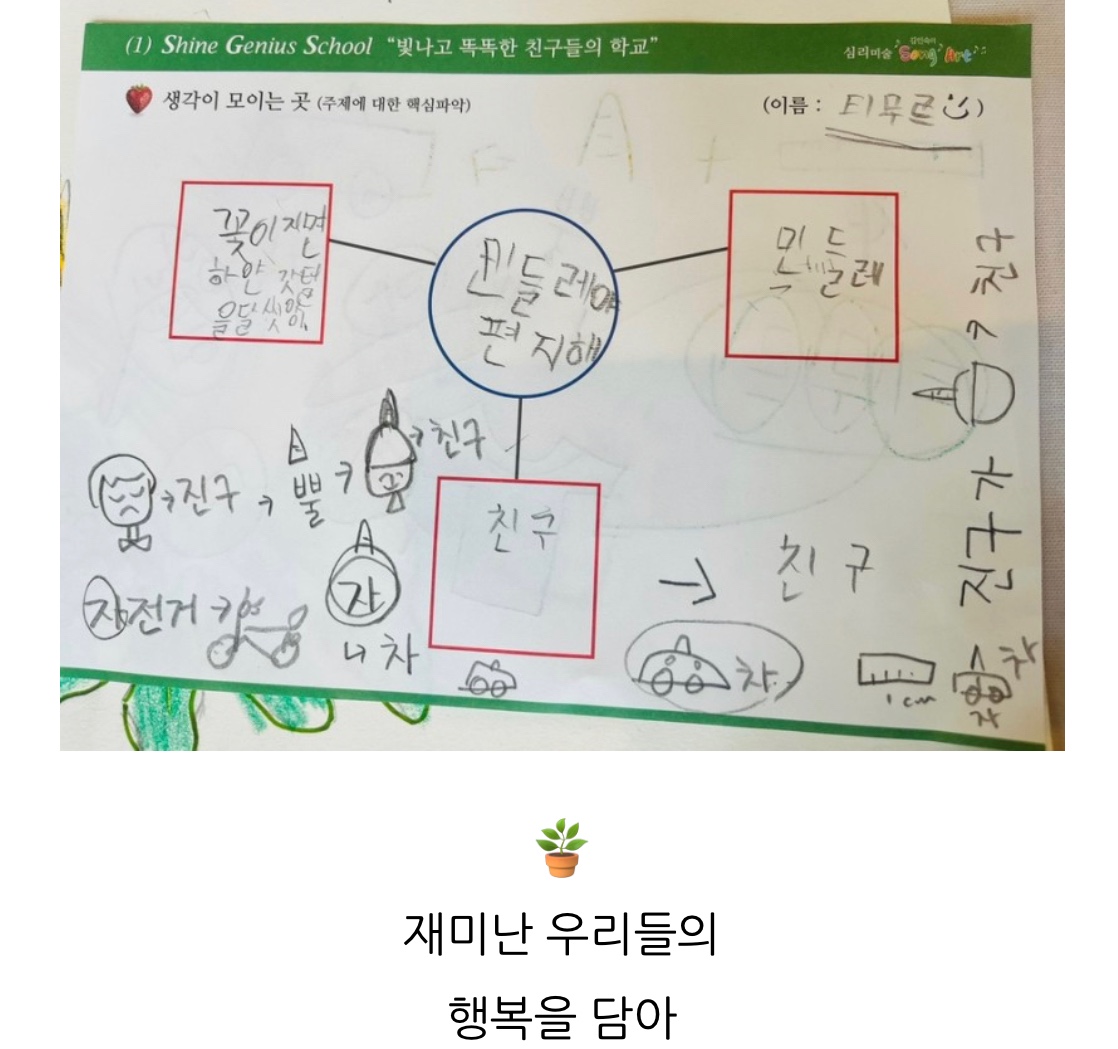 (1) Shine Genius School “빛나고 똑똑한 친구들의 학교”
심리미술 Song Art
생각이 모이는 곳 (주제에 대한 핵심파악)
(이름 : 티무르)
꽃이지면
하얀 갓털
을달 씻앗
민들레야
편지해
민들레
친구
친구
친구
진구
뿔
자전거
자
차
차
1 cm
차
자
친구
진구가
재미난 우리들의
행복을 담아